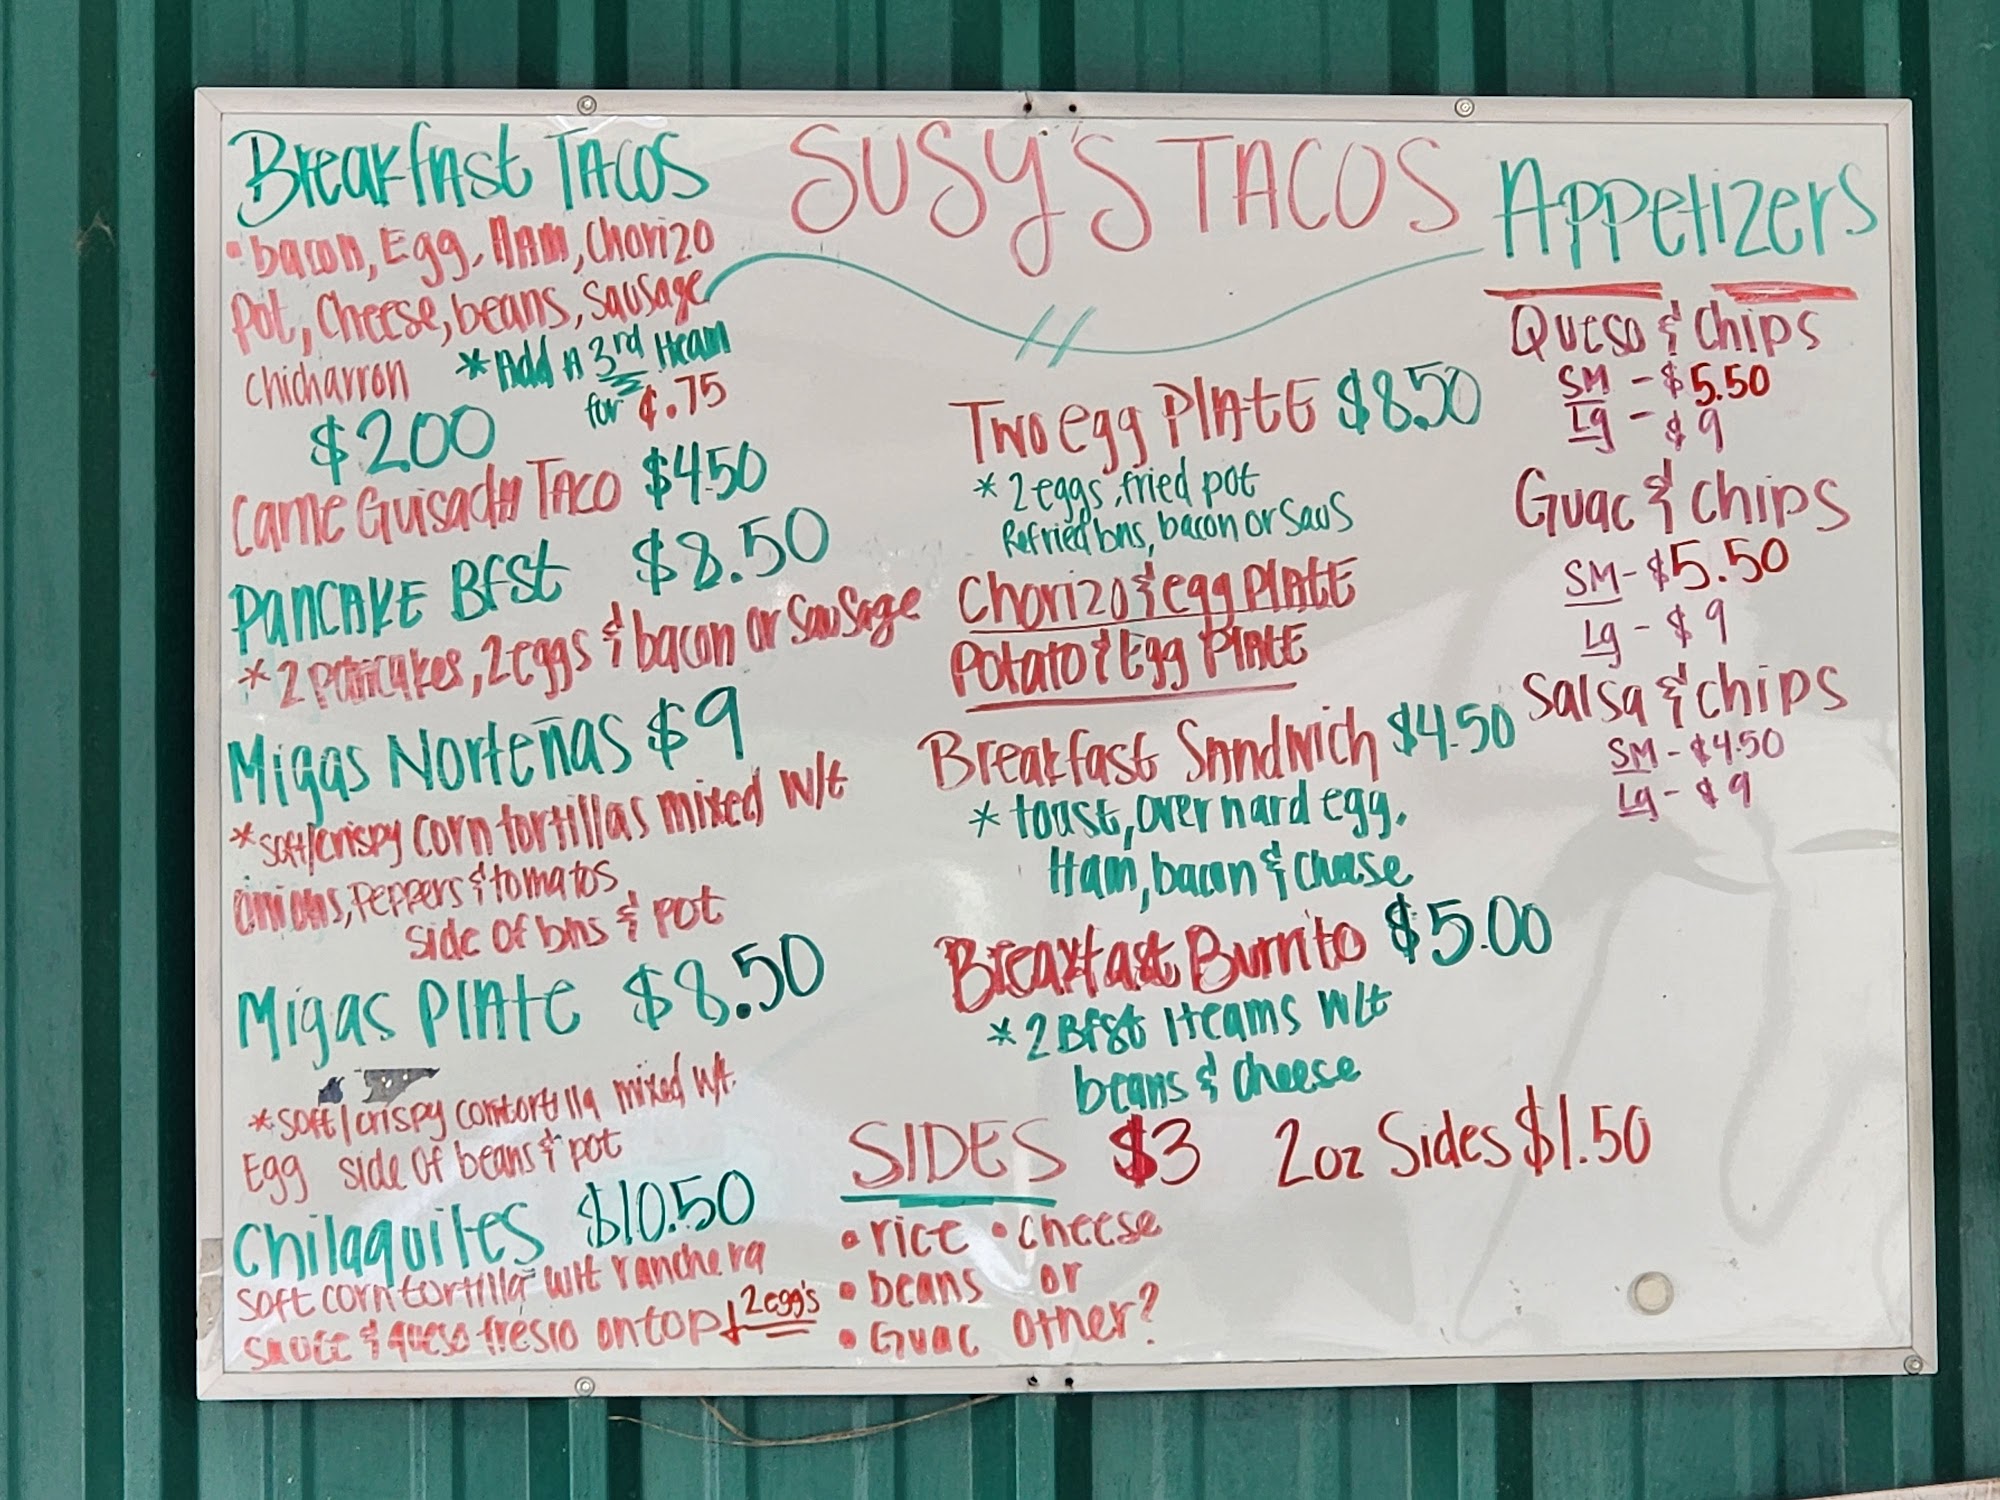 SUSY'S TACOS
Breakfast TACOS
• bacon, Egg, HAM, Chorizo
Pot, Cheese, beans, Sausage
chicharron
* Add A 3rd Iteam
for ¢.75
$2.00
Carne GuisadA TACO $4.50
PANCAKE Bfst $8.50
* 2 pancakes, 2 eggs & bacon or Sausage
Migas Norteñas $9
* soft/crispy corn tortillas mixed w/t
onions, Peppers & tomatos
side of bns & pot
Migas PlAte $8.50
* soft/crispy corn tortilla mixed w/t
Egg side of beans & pot
Chilaquiles $10.50
soft corn tortilla w/t ranchera
sauce & queso fresco on top + 2 egg's
Two egg PlAtE $8.50
* 2 eggs, fried pot
Refried bns, bacon or Saus
Chorizo & egg PlAtE
Potato & Egg PlAtE
Breakfast SAndwich $4.50
* toast, over hard egg.
Ham, bacon & cheese
Breakfast Burrito $5.00
* 2 Bfst Iteams w/t
beans & cheese
SIDES $3 2oz Sides $1.50
• rice • cheese
• beans or
• Guac other?
Appetizers
Queso & Chips
SM - $5.50
Lg - $9
Guac & chips
SM - $5.50
Lg - $9
Salsa & chips
SM - $4.50
Lg - $9